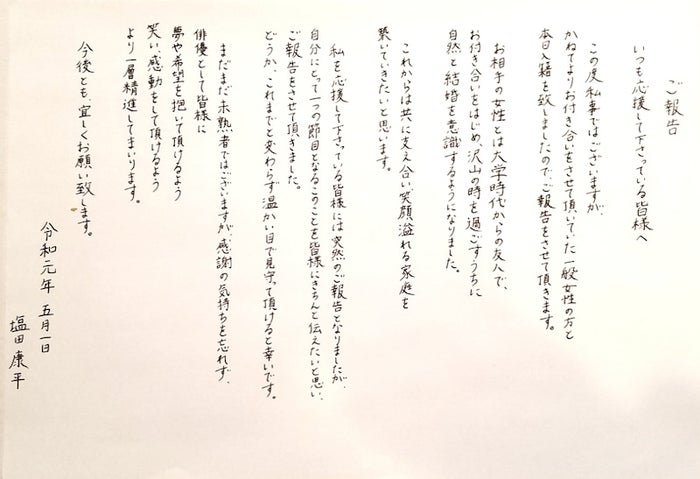 ご報告
いつも応援して下さっている皆様へ
この度私事ではございますが、
かねてよりお付き合いをさせて頂いていた一般女性の方と
本日入籍を致しましたので、ご報告をさせて頂きます。
お相手の女性とは大学時代からの友人で、
お付き合いをはじめ、沢山の時を過ごすうちに
自然と結婚を意識するようになりました。
これからは共に支え合い笑顔溢れる家庭を
築いていきたいと思います。
私を応援して下さっている皆様には、突然のご報告となりましたが、
自分にとって一つの節目となるこのことを皆様にきちんと伝えたいと思い、
ご報告をさせて頂きました。
どうか、これまでと変わらず温かい目で見守って頂けると幸いです。
まだまだ未熟者ではございますが、感謝の気持ちを忘れず、
俳優として皆様に
夢や希望を抱いて頂けるよう
笑い、感動をして頂けるよう
より一層精進してまいります。
今後とも宜しくお願い致します。
令和元年 五月一日
塩田康平